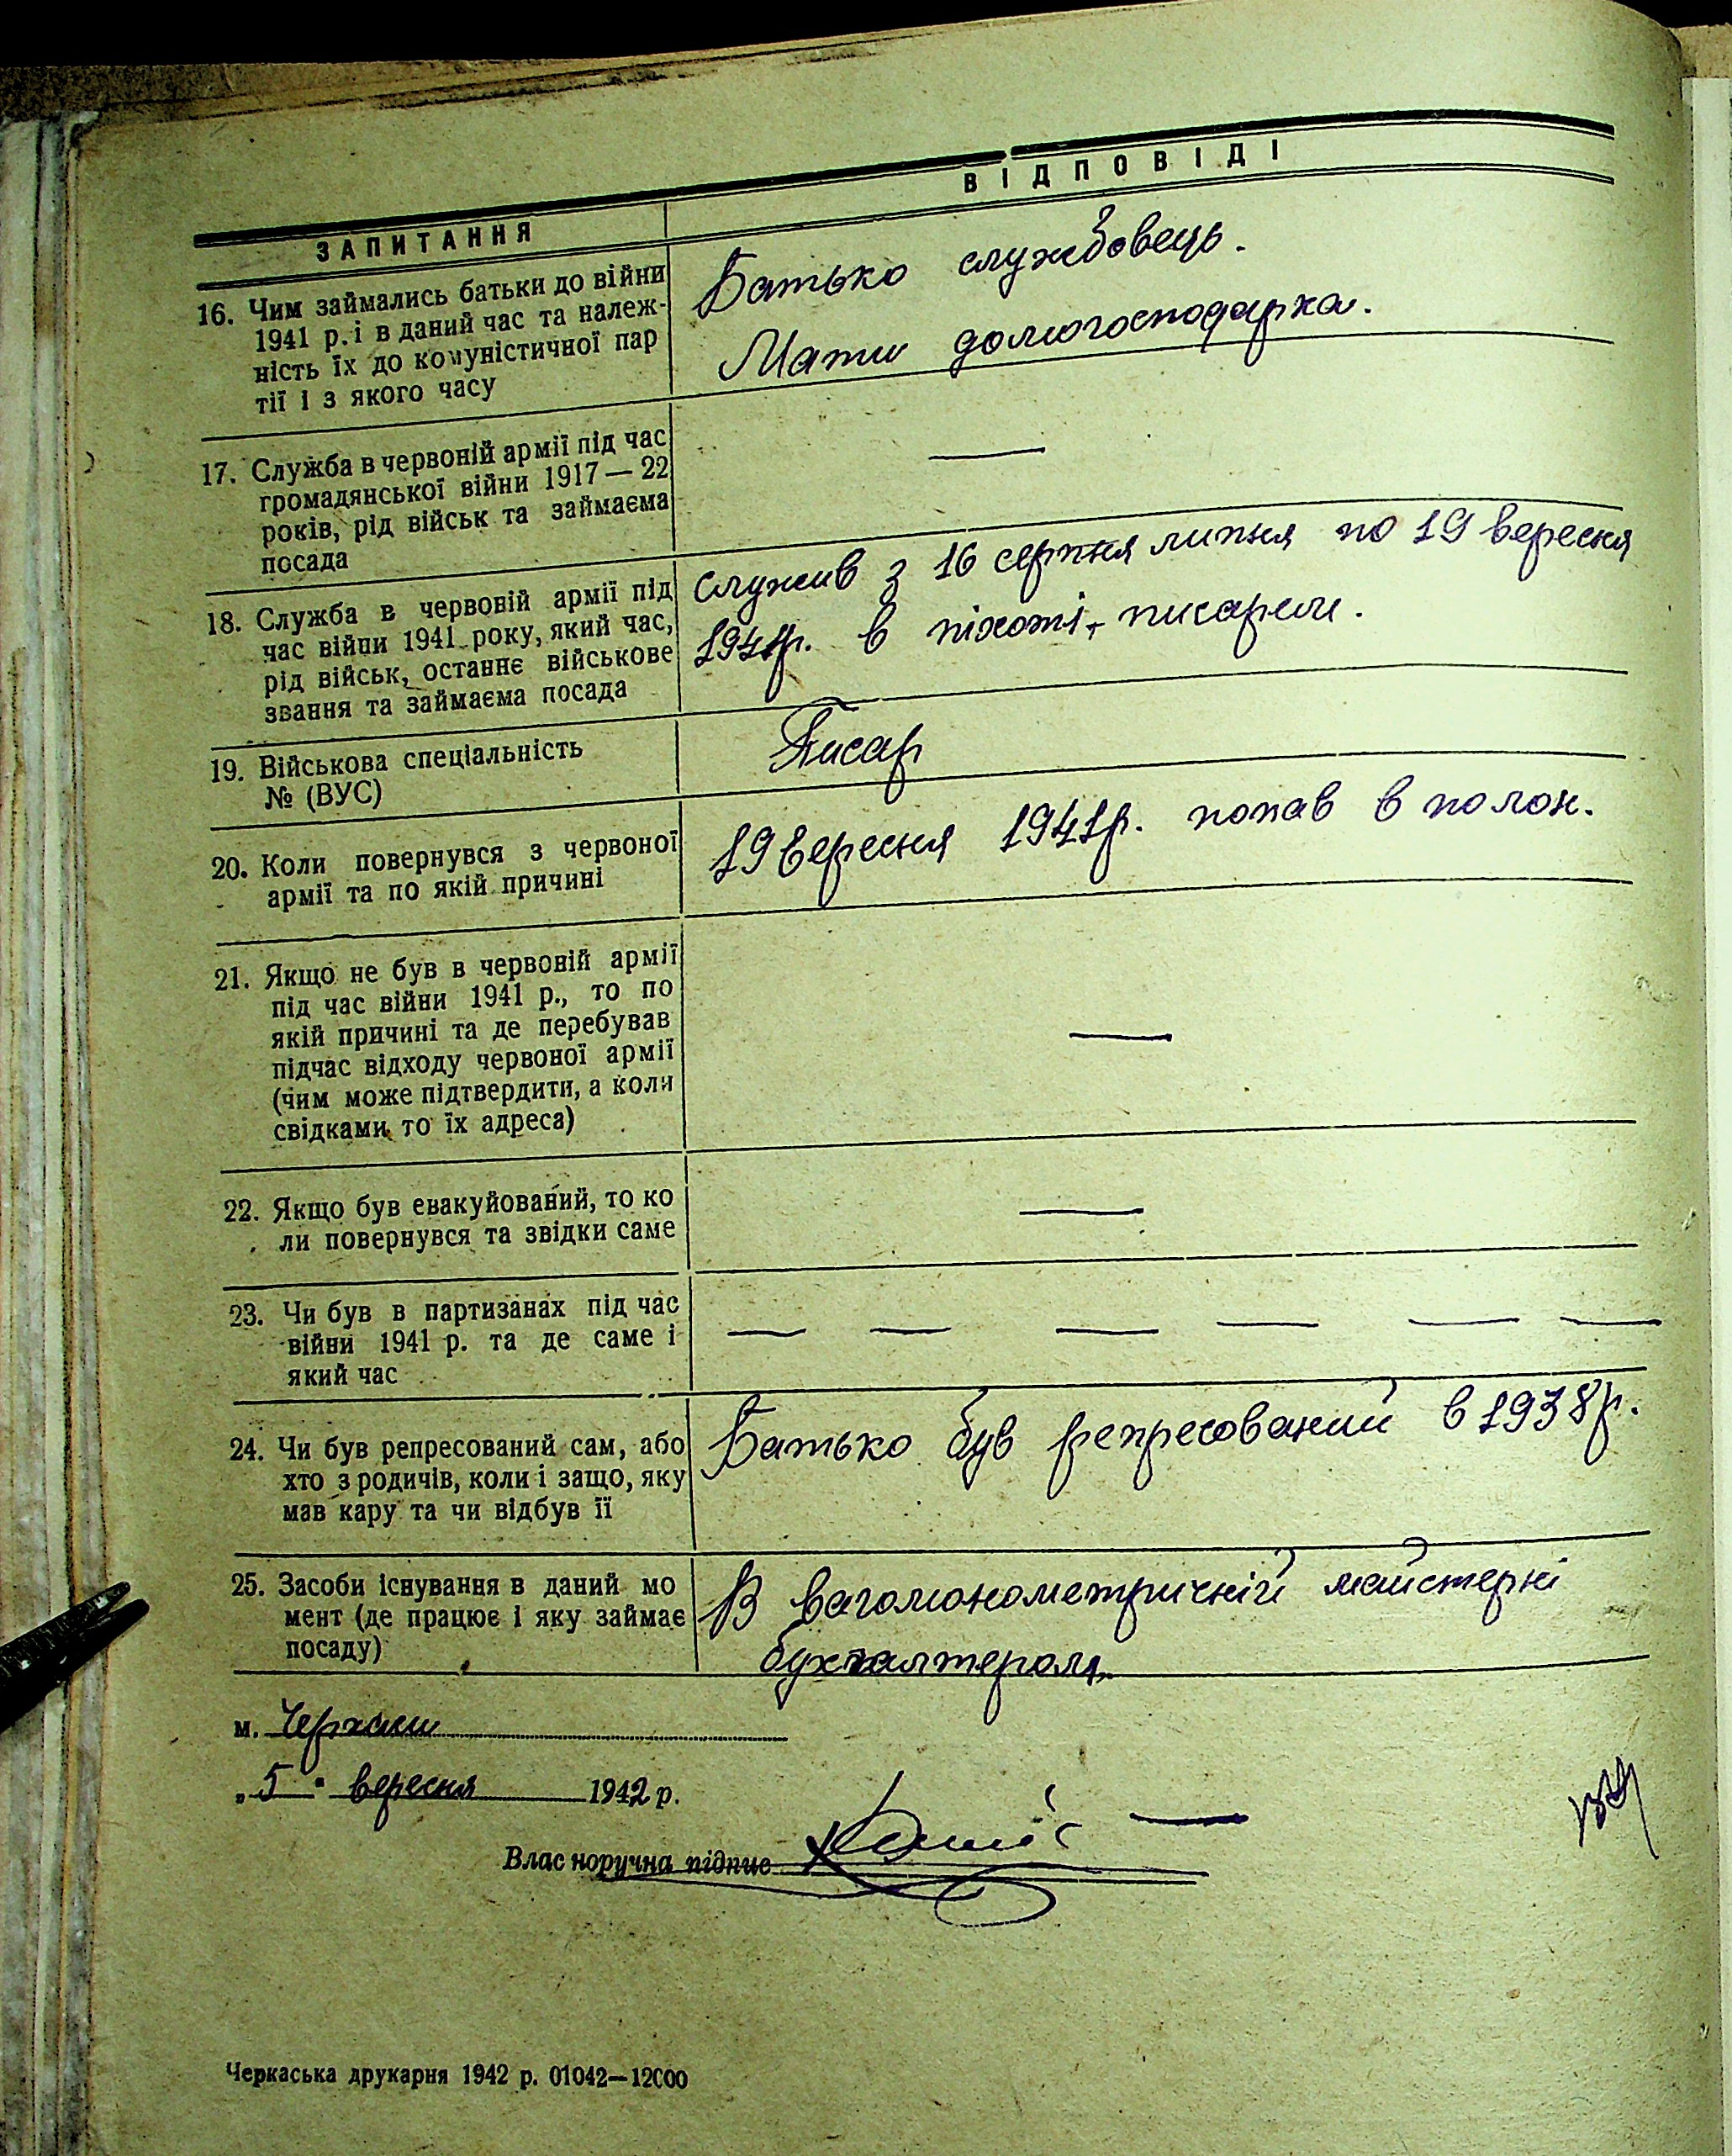 ЗАПИТАННЯ
ВІДПОВІДІ
16. Чим займались батьки до війни
1941 р. і в даний час та належ-
ність їх до комуністичної пар
тії і з якого часу
Батько службовець.
Мати домогосподарка.
17. Служба в червоній армії під час
громадянської війни 1917 — 22
років, рід військ та займаєма
посада
—
18. Служба в червоній армії під
час війни 1941 року, який час,
рід військ, останнє військове
звання та займаєма посада
Служив з 16 серпня липня по 19 вересня
1941р. в піхоті, писарем.
19. Військова спеціальність
№ (ВУС)
Писар
20. Коли повернувся з червоної
армії та по якій причині
19 вересня 1941р. попав в полон.
21. Якщо не був в червоній армії
під час війни 1941 р., то по
якій причині та де перебував
підчас відходу червоної армії
(чим може підтвердити, а коли
свідками, то їх адреса)
—
22. Якщо був евакуйований, то ко
ли повернувся та звідки саме
—
23. Чи був в партизанах під час
війни 1941 р. та де саме і
який час
— — — — — —
24. Чи був репресований сам, або
хто з родичів, коли і защо, яку
мав кару та чи відбув її
Батько був репресований в 1938р.
25. Засоби існування в даний мо
мент (де працює і яку займає
посаду)
В вагомонометричній майстерні
бухгалтером.
м. Черкаси
„5" вересня 1942 р.
Влас норучна підпис
Черкаська друкарня 1942 р. 01042—12000